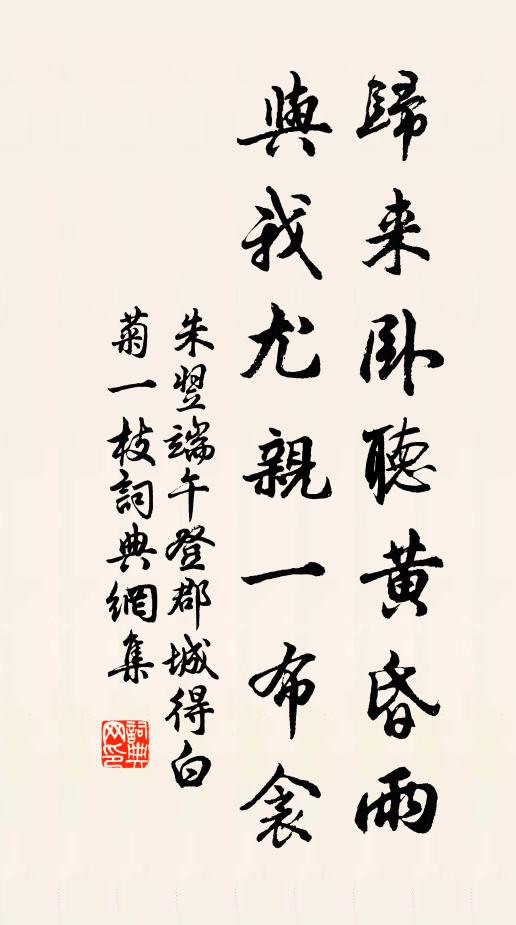 歸来卧聽黄昏雨
與我尤親一布衾
朱翌端午登郡城得白
菊一枝詞典網集
詞典網印